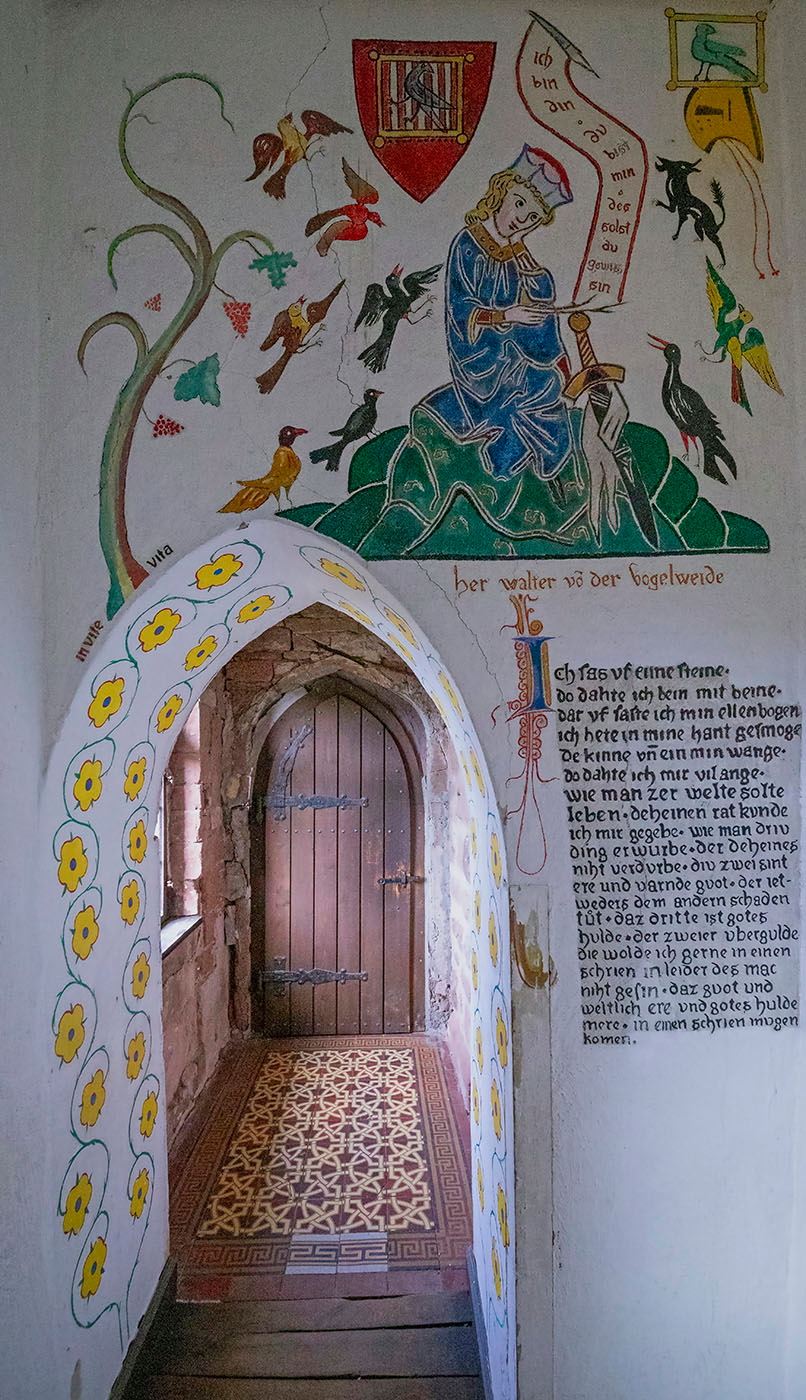 ich
bin
din · du
bist
min
· des
solst
du
gewiss
sin
her walter vō der Vogelweide
vita
in vite
Ich sas vf eime steine ·
do dahte ich bein mit beine ·
dar vf saste ich min ellenbogen
ich hete in mine hant gesmoge
de kinne vn̄ ein min wange ·
do dahte ich mir vil ange ·
wie man zer welte solte
leben · deheinen rat kvnde
ich mir gegebe · wie man driv
ding erwurbe · der deheines
niht verdvrbe · div zwei sint
ere und varnde gvot · der iet-
weders dem andern schaden
tut · daz dritte ist gotes
hulde · der zweier vbergulde
die wolde ich gerne in einen
schrien in leider des mac
niht gesin · daz gvot und
weltlich ere vnd gotes hulde
mere · in einen schrien mugen
komen ·